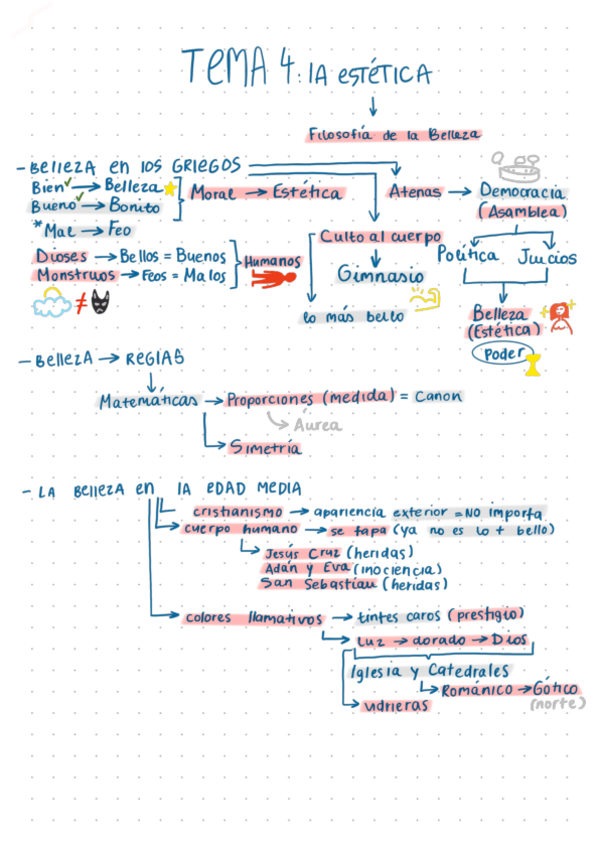 TEMA 4: LA ESTÉTICA
Filosofía de la Belleza
- BELLEZA en LOS GRIEGOS
Bien → Belleza
Bueno → Bonito
Moral → Estética
Atenas → Democracia
(Asamblea)
* Mal → Feo
Culto al cuerpo
Política Juicios
Dioses → Bellos = Buenos
Monstruos → Feos = Malos
Humanos
Gimnasio
lo más bello
Belleza
(Estética)
Poder
≠
- BELLEZA → REGLAS
Matemáticas → Proporciones (medida) = Canon
Áurea
Simetría
- LA BELLEZA en LA EDAD MEDIA
cristianismo → apariencia exterior = NO importa
cuerpo humano → se tapa (ya no es lo + bello)
Jesús Cruz (heridas)
Adán y Eva (inociencia)
San Sebastian (heridas)
colores llamativos → tintes caros (prestigio)
Luz → dorado → Dios
Iglesia y Catedrales
Románico → Gótico
(norte)
vidrieras